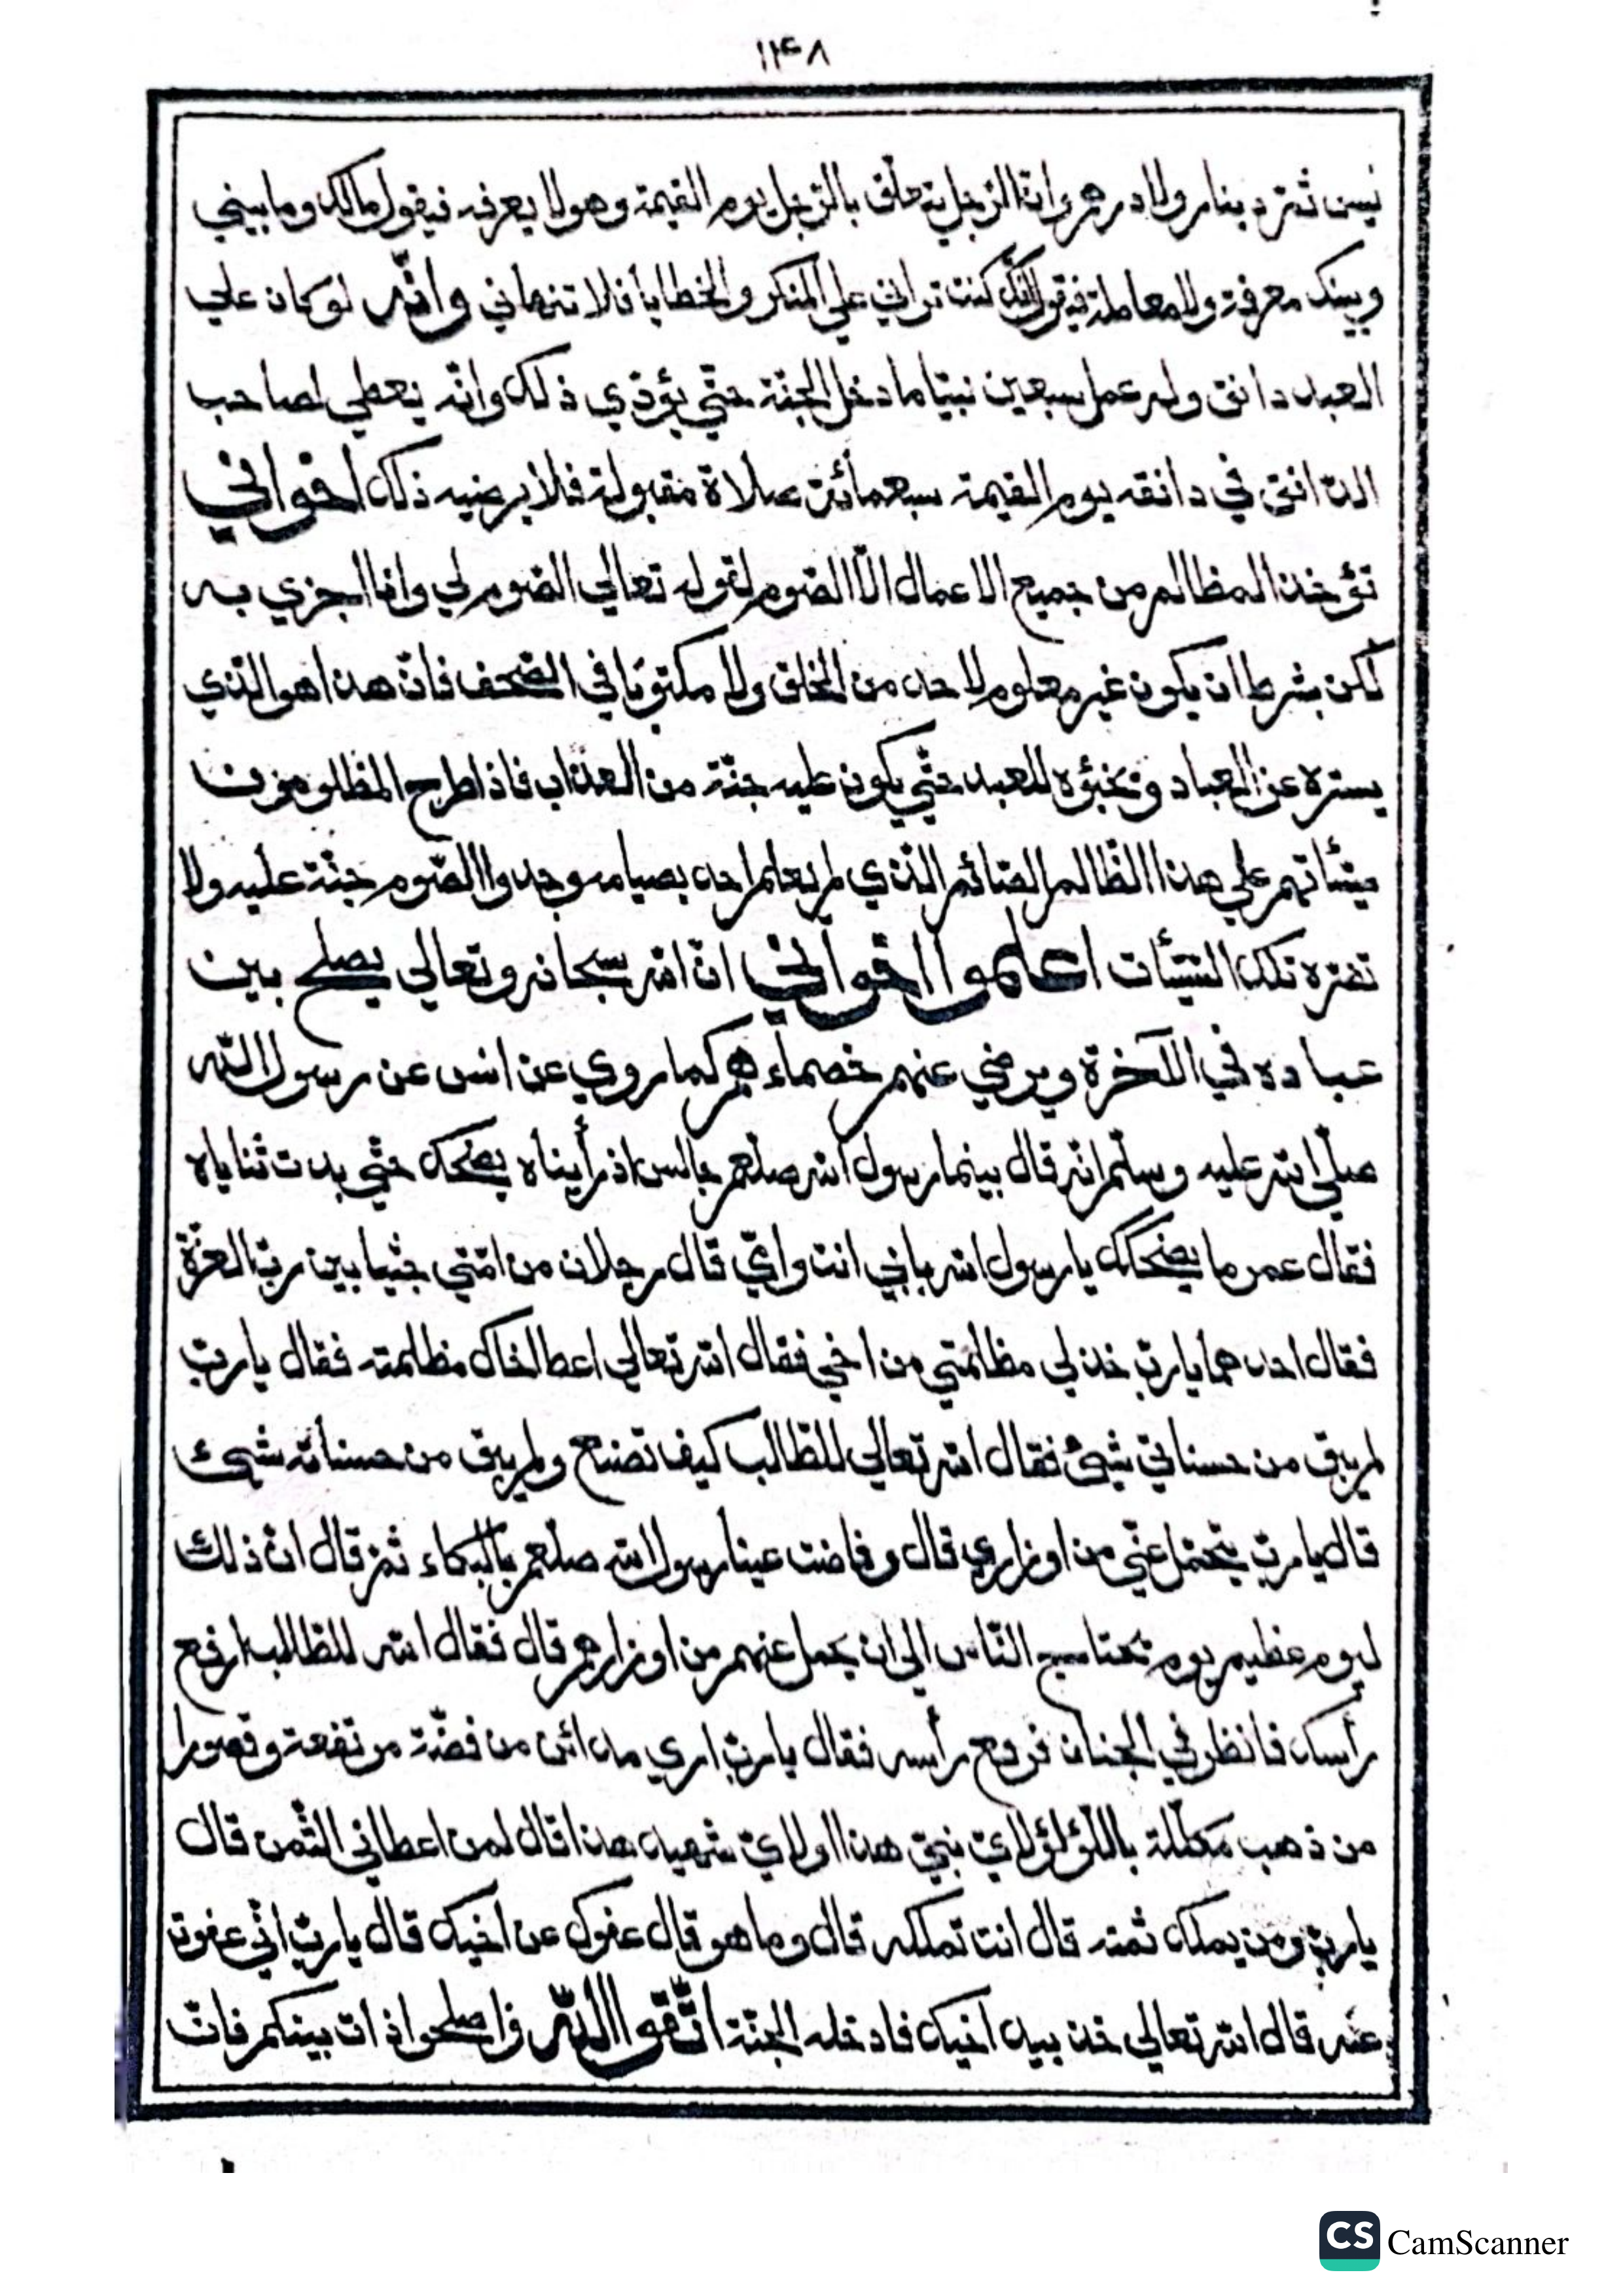 ١٣٤٨
ليس ثمّ دينار ولا درهم وانّ الرّجل يتعلّق بالرّجل يوم القيمة وهو لا يعرفه فيقول مالك وما بيني
وبينك معرفة ولا معاملة فيقول انّك كنت تراني علي المنكر والخطايا فلا تنهاني والله لو كان علي
العبد دانق وله عمل سبعين نبيّا ما دخل الجنّة حتّي يؤدّي ذلك وانّه يعطي لصاحب
الدّانق في دانقه يوم القيمة سبعمائة صلاة مقبولة فلا يرضيه ذلك اخواني
تؤخذ المظالم من جميع الاعمال الّا الصّوم لقوله تعالي الصّوم لي وانا اجزي به
لكن بشرط ان يكون غير معلوم لاحد من الخلق ولا مكتوبًا في الصّحف فانّ هذا هو الّذي
يستره عن العباد ويخبؤه للعبد حتّي يكون عليه جنّة من العذاب فاذا طرح المظلومون
سيّئاتهم علي هذا الظّالم الصّائم الّذي لم يعلم احد بصيامه وجدوا الصّوم جنّة عليه ولا
تضرّه تلك السّيّئات اعلموا اخواني انّ الله سبحانه وتعالي يصلح بين
عباده في الآخرة ويرضي عنهم خصماءهم كما روي عن انس عن رسول الله
صلّي الله عليه وسلّم انّه قال بينما رسول الله صلعم جالس اذ رأيناه يضحك حتّي بدت ثناياه
فقال عمر ما يضحكك يا رسول الله بابي انت وامّي قال رجلان من امّتي جثيا بين ربّ العزّة
فقال احدهما يا ربّ خذ لي مظلمتي من اخي فقال الله تعالي اعط اخاك مظلمته فقال يا ربّ
لم يبق من حسناتي شئ فقال الله تعالي للطّالب كيف تصنع ولم يبق من حسناته شئ
قال يا ربّ يتحمّل عنّي من اوزاري قال وفاضت عينا رسول الله صلعم بالبكاء ثمّ قال انّ ذلك
ليوم عظيم يوم تحتاج النّاس الي ان يحمل عنهم من اوزارهم قال فقال الله للطّالب ارفع
رأسك فانظر في الجنان فرفع رأسه فقال يا ربّ اري مدائن من فضّة مرتفعة وقصورا
من ذهب مكلّلة باللّؤلؤ لايّ نبيّ هذا او لايّ شهيد هذا قال لمن اعطاني الثّمن قال
يا ربّ ومن يملك ثمنه قال انت تملكه قال وما هو قال عفوك عن اخيك قال يا ربّ انّي عفوت
عنه قال الله تعالي خذ بيد اخيك فادخله الجنّة اتّقوا الله واصلحوا ذات بينكم فانّ
CS CamScanner